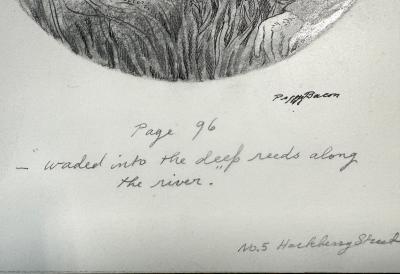 Peggy Bacon
Page 96
— "waded into the deep reeds along
the river."
No. 5 Hackberry Street